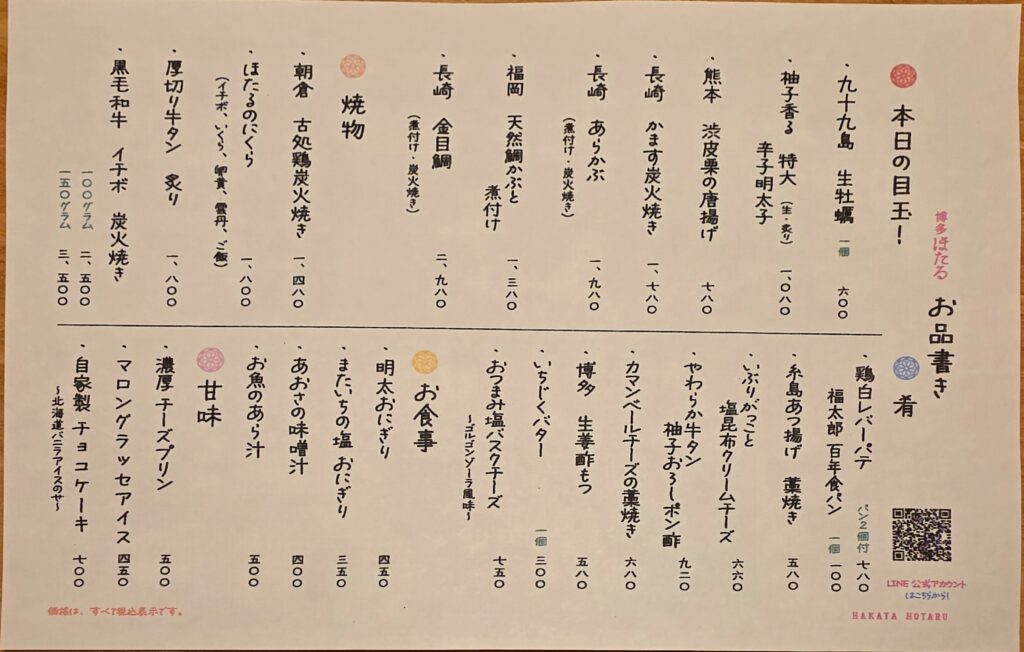 博多 ほたる お品書き
本日の目玉!
・九十九島 生牡蠣 一個 六〇〇
・柚子香る 特大 (生・炙り)
辛子明太子 一、〇八〇
・熊本 渋皮栗の唐揚げ 七八〇
・長崎 かます炭火焼き 一、七八〇
・長崎 あらかぶ 一、九八〇
(煮付け・炭火焼き)
・福岡 天然鯛かぶと
煮付け 一、三八〇
・長崎 金目鯛 二、九八〇
(煮付け・炭火焼き)
焼物
・朝倉 古処鶏炭火焼き 一、四八〇
・ほたるのにくら 一、八〇〇
(イチボ、いくら、卵黄、雲丹、ご飯)
・厚切り牛タン 炙り 一、八〇〇
・黒毛和牛 イチボ 炭火焼き
一〇〇グラム 二、五〇〇
一五〇グラム 三、五〇〇
肴
・鶏白レバーパテ パン2個付 七八〇
福太郎 百年食パン 一個 一〇〇
・糸島あつ揚げ 藁焼き 五八〇
・いぶりがっこと
塩昆布クリームチーズ 六六〇
・やわらか牛タン
柚子おろしポン酢 九二〇
・カマンベールチーズの藁焼き 六八〇
・博多 生姜酢もつ 五八〇
・いちじくバター 一個 三〇〇
・おつまみ塩バスクチーズ 七五〇
〜ゴルゴンゾーラ風味〜
お食事
・明太おにぎり 四五〇
・またいちの塩 おにぎり 三五〇
・あおさの味噌汁 四〇〇
・お魚のあら汁 五〇〇
甘味
・濃厚チーズプリン 五〇〇
・マロングラッセアイス 四五〇
・自家製 チョコケーキ 七〇〇
〜北海道バニラアイスのせ〜
LINE 公式アカウント
(はこちらから!
HAKATA HOTARU
価格は、すべて税込表示です。